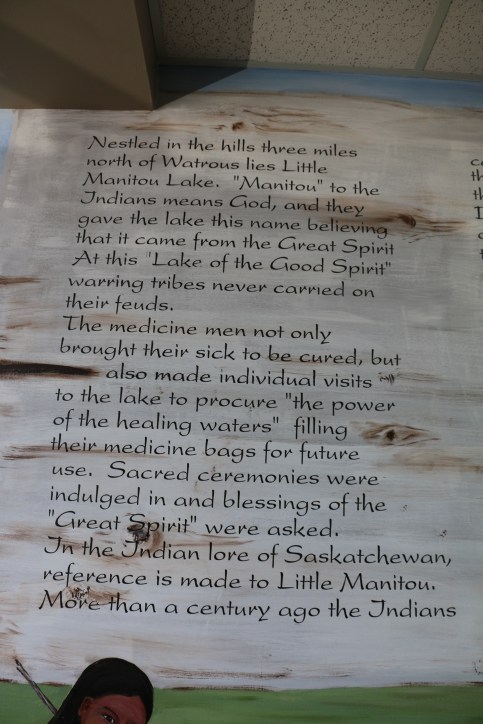 Nestled in the hills three miles
north of Watrous lies Little
Manitou Lake. "Manitou" to the
Indians means God, and they
gave the lake this name believing
that it came from the Great Spirit
At this 'Lake of the Good Spirit"
warring tribes never carried on
their feuds.
The medicine men not only
brought their sick to be cured, but
also made individual visits
to the lake to procure "the power
of the healing waters" filling
their medicine bags for future
use. Sacred ceremonies were
indulged in and blessings of the
"Great Spirit" were asked.
In the Indian lore of Saskatchewan,
reference is made to Little Manitou.
More than a century ago the Indians